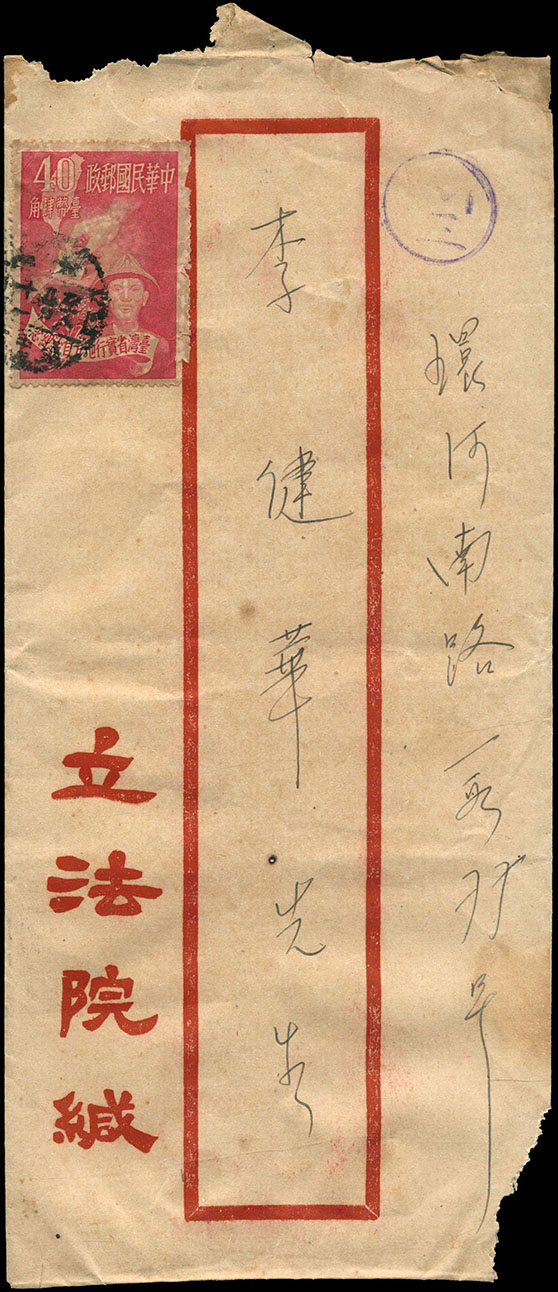 環河南路一段
李健華先生
立法院緘
中華民國郵政
40
臺幣肆角
臺灣省實行地方自治